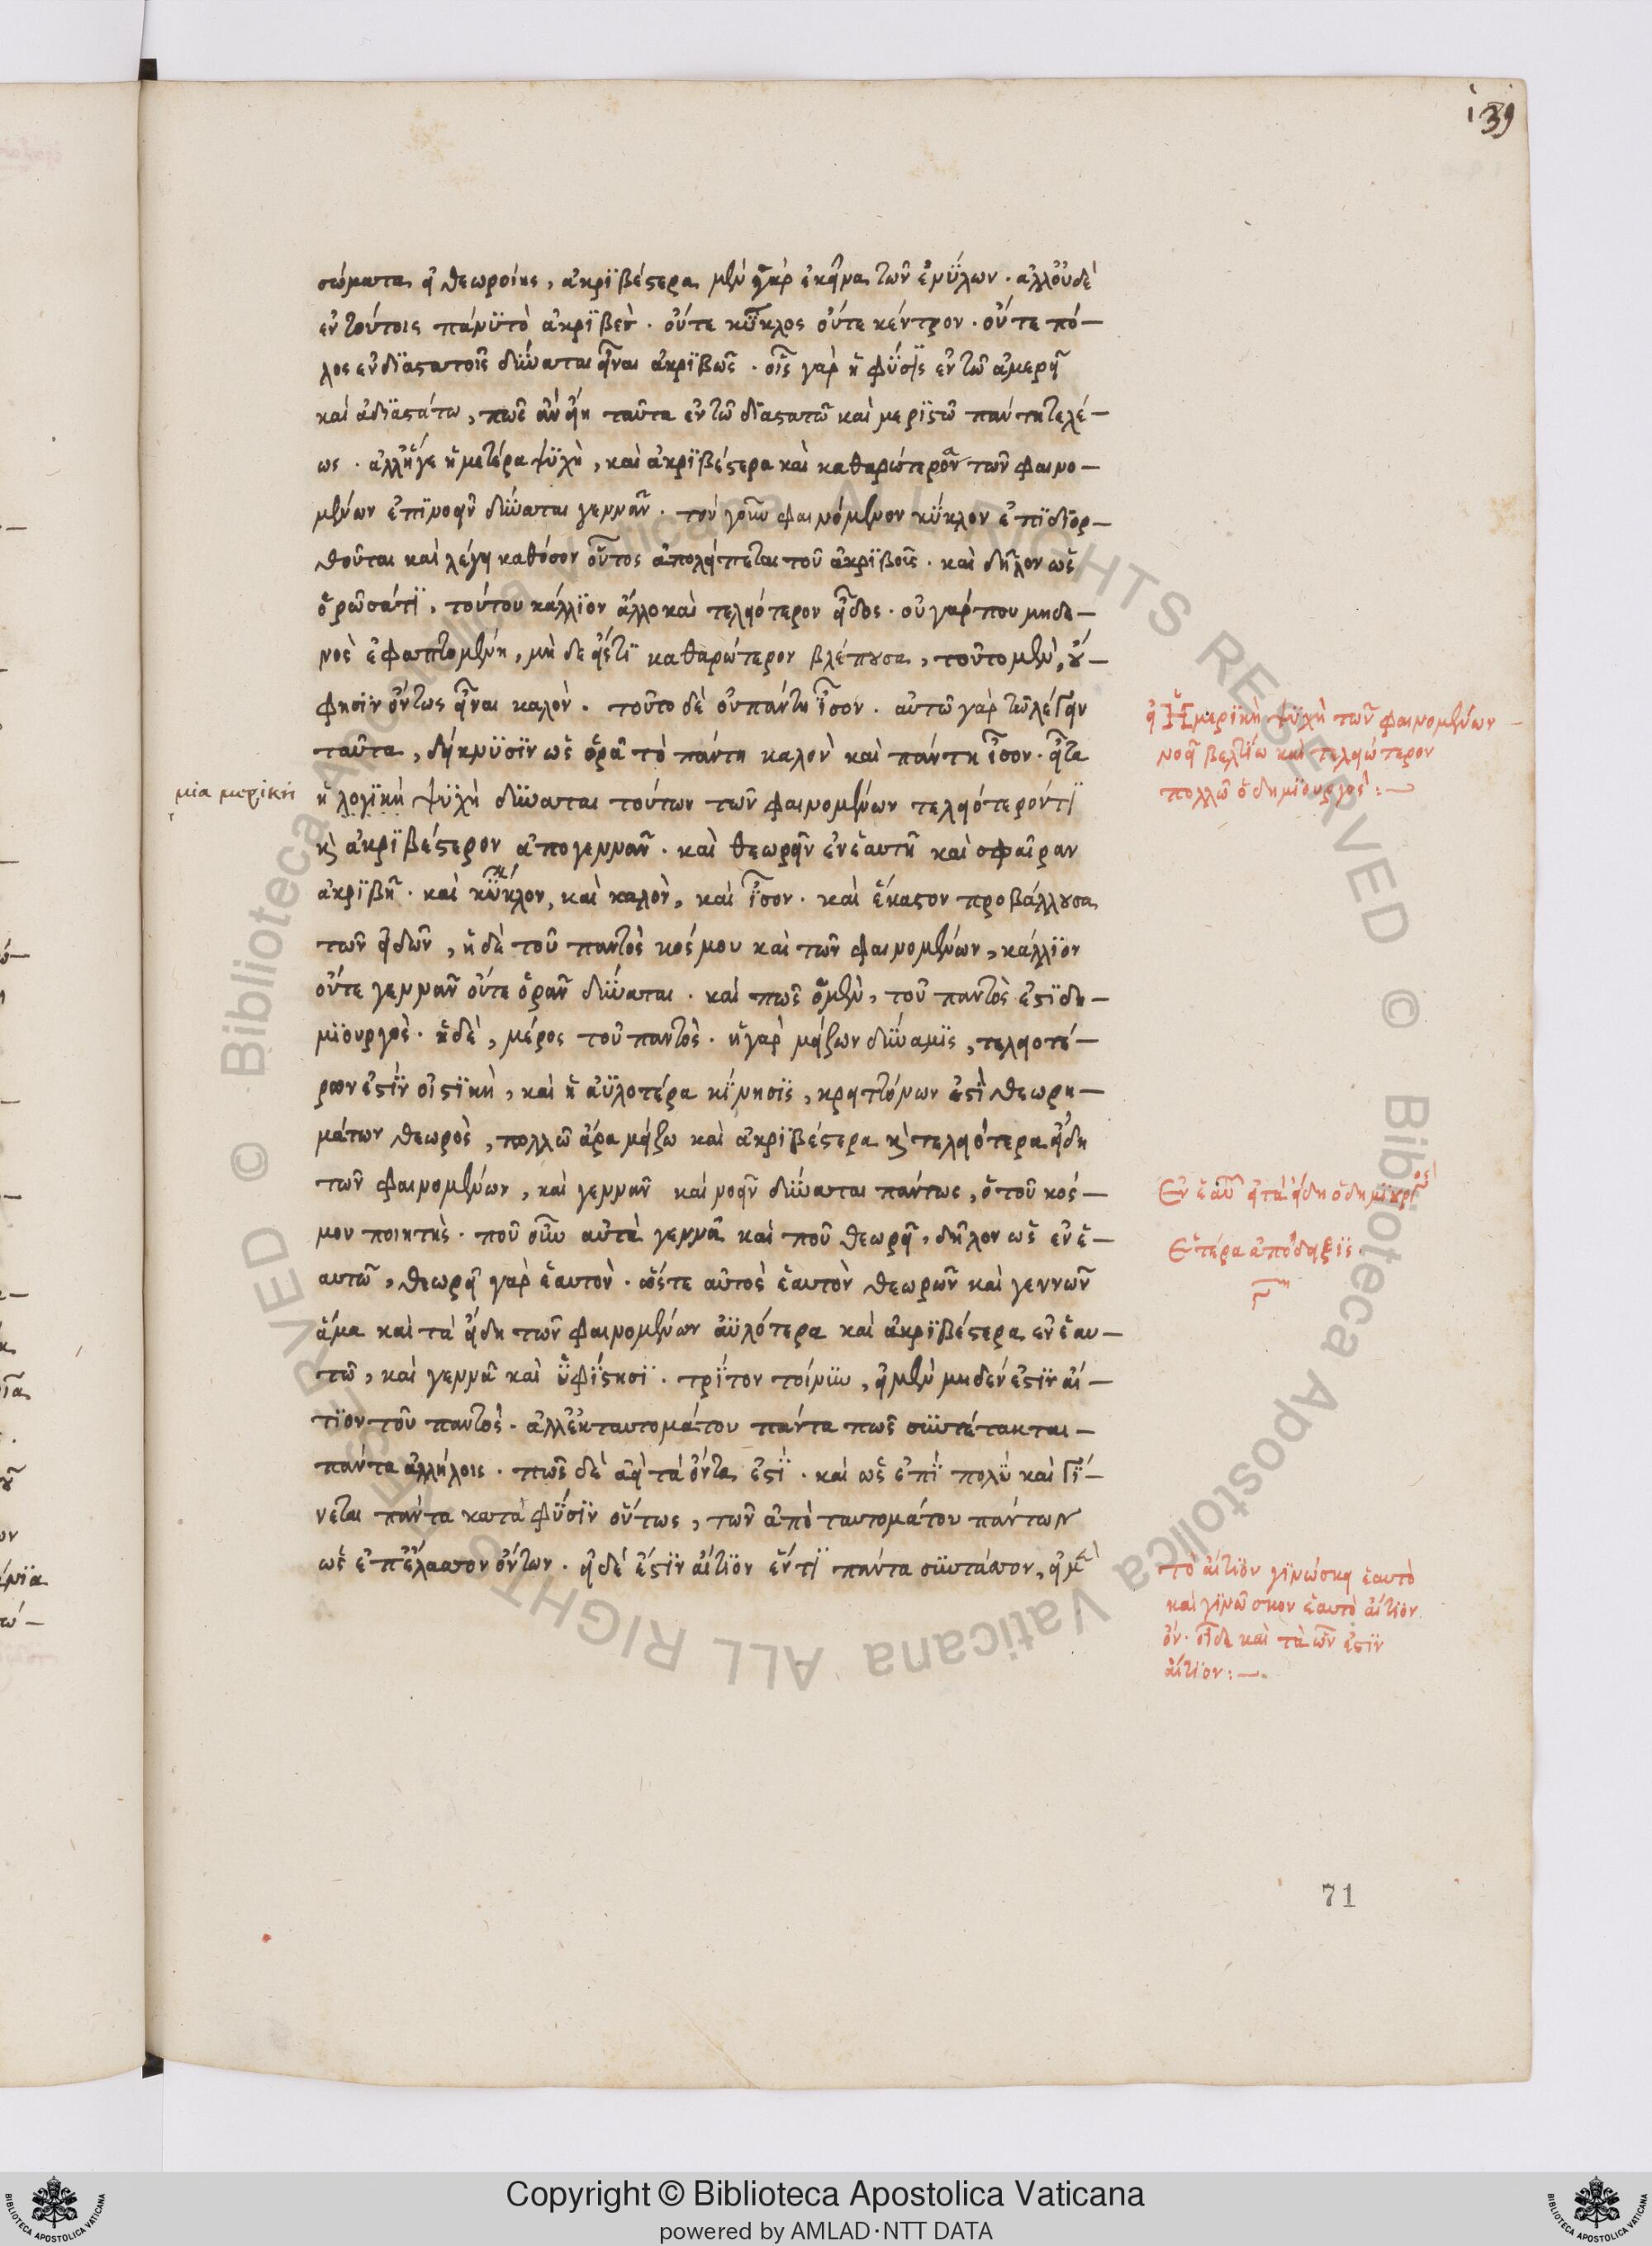 139
σώματα εἰ θεωροίης, ἀκριβέστερα μὲν γὰρ ἐκεῖνα τῶν ἐνύλων. ἀλλ' οὐδὲ
ἐν τούτοις πάνυ τὸ ἀκριβές. οὔτε κύκλος οὔτε κέντρον. οὔτε πό–
λος ἐν διαστατοῖς δύναται εἶναι ἀκριβῶς. οἷς γὰρ ἡ φύσις ἐν τῶ ἀμερεῖ
καὶ ἀδιαστάτω, πῶς ἂν εἴη ταῦτα ἐν τῶ διαστατῶ καὶ μεριστῶ παντητελέ–
ως. ἀλλ' ἥγε ἡμετέρα ψυχὴ, καὶ ἀκριβέστερα καὶ καθαρώτερα τῶν φαινο–
μένων ἐπινοεῖν δύναται γεννᾶν. τὸν γοῦν φαινόμενον κύκλον ἐπιδιορ–
θοῦται καὶ λέγει καθόσον οὗτος ἀπολείπεται τοῦ ἀκριβοῦς. καὶ δῆλον ὡς
ὁρῶσά τι, τούτου κάλλιον ἄλλο καὶ τελειότερον εἶδος. οὐ γάρ που μηδε–
νὸς ἐφαπτομένη, μὴ δε εἴς τι καθαρώτερον βλέπουσα, τοῦτο μὲν, οὔ–
φησιν ὄντως εἶναι καλόν. τοῦτο δὲ οὐ πάντη ἴσον. αὐτῶ γὰρ τῶ λέγειν
ταῦτα, δείκνυσιν ὡς ὁρᾶ τὸ πάντη καλὸν καὶ πάντη ἴσον. εἶτα
μία μερικὴ
ἡ λογικὴ ψυχὴ δύναται τούτων τῶν φαινομένων τελειότερόν τι
καὶ ἀκριβέστερον ἀπογεννᾶν. καὶ θεωρεῖν ἐν ἑαυτῆ καὶ σφαῖραν
ἀκριβῆ. καὶ κύκλον, καὶ καλὸν, καὶ ἴσον. καὶ ἕκαστον προβάλλουσα
τῶν εἰδῶν, ἡ δὲ τοῦ παντὸς κόσμου καὶ τῶν φαινομένων, κάλλιον
οὔτε γεννᾶν οὔτε ὁρᾶν δύναται. καὶ πῶς ὁ μὲν, τοῦ παντὸς ἐστὶ δη–
μιουργός. ἡ δὲ, μέρος τοῦ παντός. ἡ γὰρ μείζων δύναμις, τελειοτέ–
ρων ἐστὶν οἰστικὴ, καὶ ἡ ἀϋλοτέρα κίνησις, κρειττόνων ἐστὶ θεωρη–
μάτων θεωρὸς, πολλῶ ἄρα μείζω καὶ ἀκριβέστερα καὶ τελειότερα εἴδη
τῶν φαινομένων, καὶ γεννᾶν καὶ νοεῖν δύναται πάντως, ὁ τοῦ κόσ–
μου ποιητής. ποῦ οὖν αὐτὰ γεννᾶ καὶ ποῦ θεωρεῖ, δῆλον ὡς ἐν ἑ–
αυτῶ, θεωρεῖ γὰρ ἑαυτόν. ὥστε αὐτὸς ἑαυτὸν θεωρῶν καὶ γεννῶν
ἅμα καὶ τὰ εἴδη τῶν φαινομένων ἀϋλότερα καὶ ἀκριβέστερα ἐν ἑαυ–
τῶ, καὶ γεννᾶ καὶ ὑφίστησι. τρίτον τοίνυν, εἰ μὲν μηδέν ἐστιν αἴ–
τιον τοῦ παντός. ἀλλ' ἐκ ταυτομάτου πάντα πῶς συντέτακται –
πάντα ἀλλήλοις. πῶς δὲ ἀεὶ τὰ ὄντα ἐστὶ. καὶ ὡς ἐπὶ πολὺ καὶ γί–
νεται πάντα κατὰ φύσιν οὕτως, τῶν ἀπὸ ταυτομάτου πάντων
ὡς ἐπ' ἔλαττον ὄντων. εἰ δέ ἐστιν αἴτιον ἕν τι πάντα συντάττον, εἰ μὲν
εἰ Ἡ μερικὴ ψυχὴ τῶν φαινομένων
νοεῖ βελτίω καὶ τελειώτερον
πολλῶ ὁ δημιουργός :–
Ἐν ἑαυτῶ εἰ τὰ εἴδη ὁ δημιουργός
Ἑτέρα ἀπόδειξις.
τὸ αἴτιον γινώσκει ἑαυτὸ
καὶ γινῶσκον ἑαυτὸ αἴτιον
ὄν. οἶδε καὶ τὰ ὧν ἐστὶν
αἴτιον :–.
71
© Biblioteca Apostolica Vaticana ALL RIGHTS RESERVED
© Biblioteca Apostolica Vaticana ALL RIGHTS RESERVED
Copyright © Biblioteca Apostolica Vaticana
powered by AMLAD·NTT DATA
BIBLIOTECA APOSTOLICA VATICANA
BIBLIOTECA APOSTOLICA VATICANA